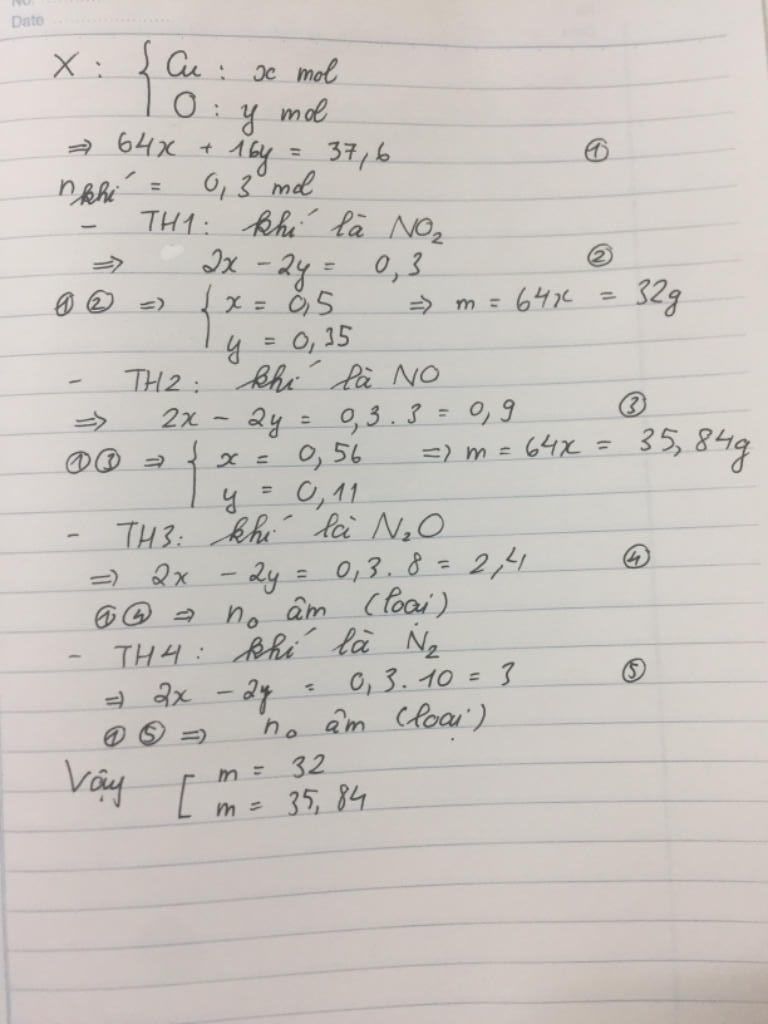 No.
Date
X : { Cu : x mol
O : y mol
⇒ 64x + 16y = 37,6 ①
n khí = 0,3 mol
- TH1: khí là NO₂
⇒ 2x - 2y = 0,3 ②
① ② ⇒ { x = 0,5 ⇒ m = 64x = 32g
y = 0,35
- TH2: khí là NO
⇒ 2x - 2y = 0,3.3 = 0,9 ③
① ③ ⇒ { x = 0,56 ⇒ m = 64x = 35,84g
y = 0,11
- TH3: khí là N₂O
⇒ 2x - 2y = 0,3.8 = 2,4 ④
① ④ ⇒ n₀ âm (loại)
- TH4: khí là N₂
⇒ 2x - 2y = 0,3.10 = 3 ⑤
① ⑤ ⇒ n₀ âm (loại)
Vậy [ m = 32
m = 35,84